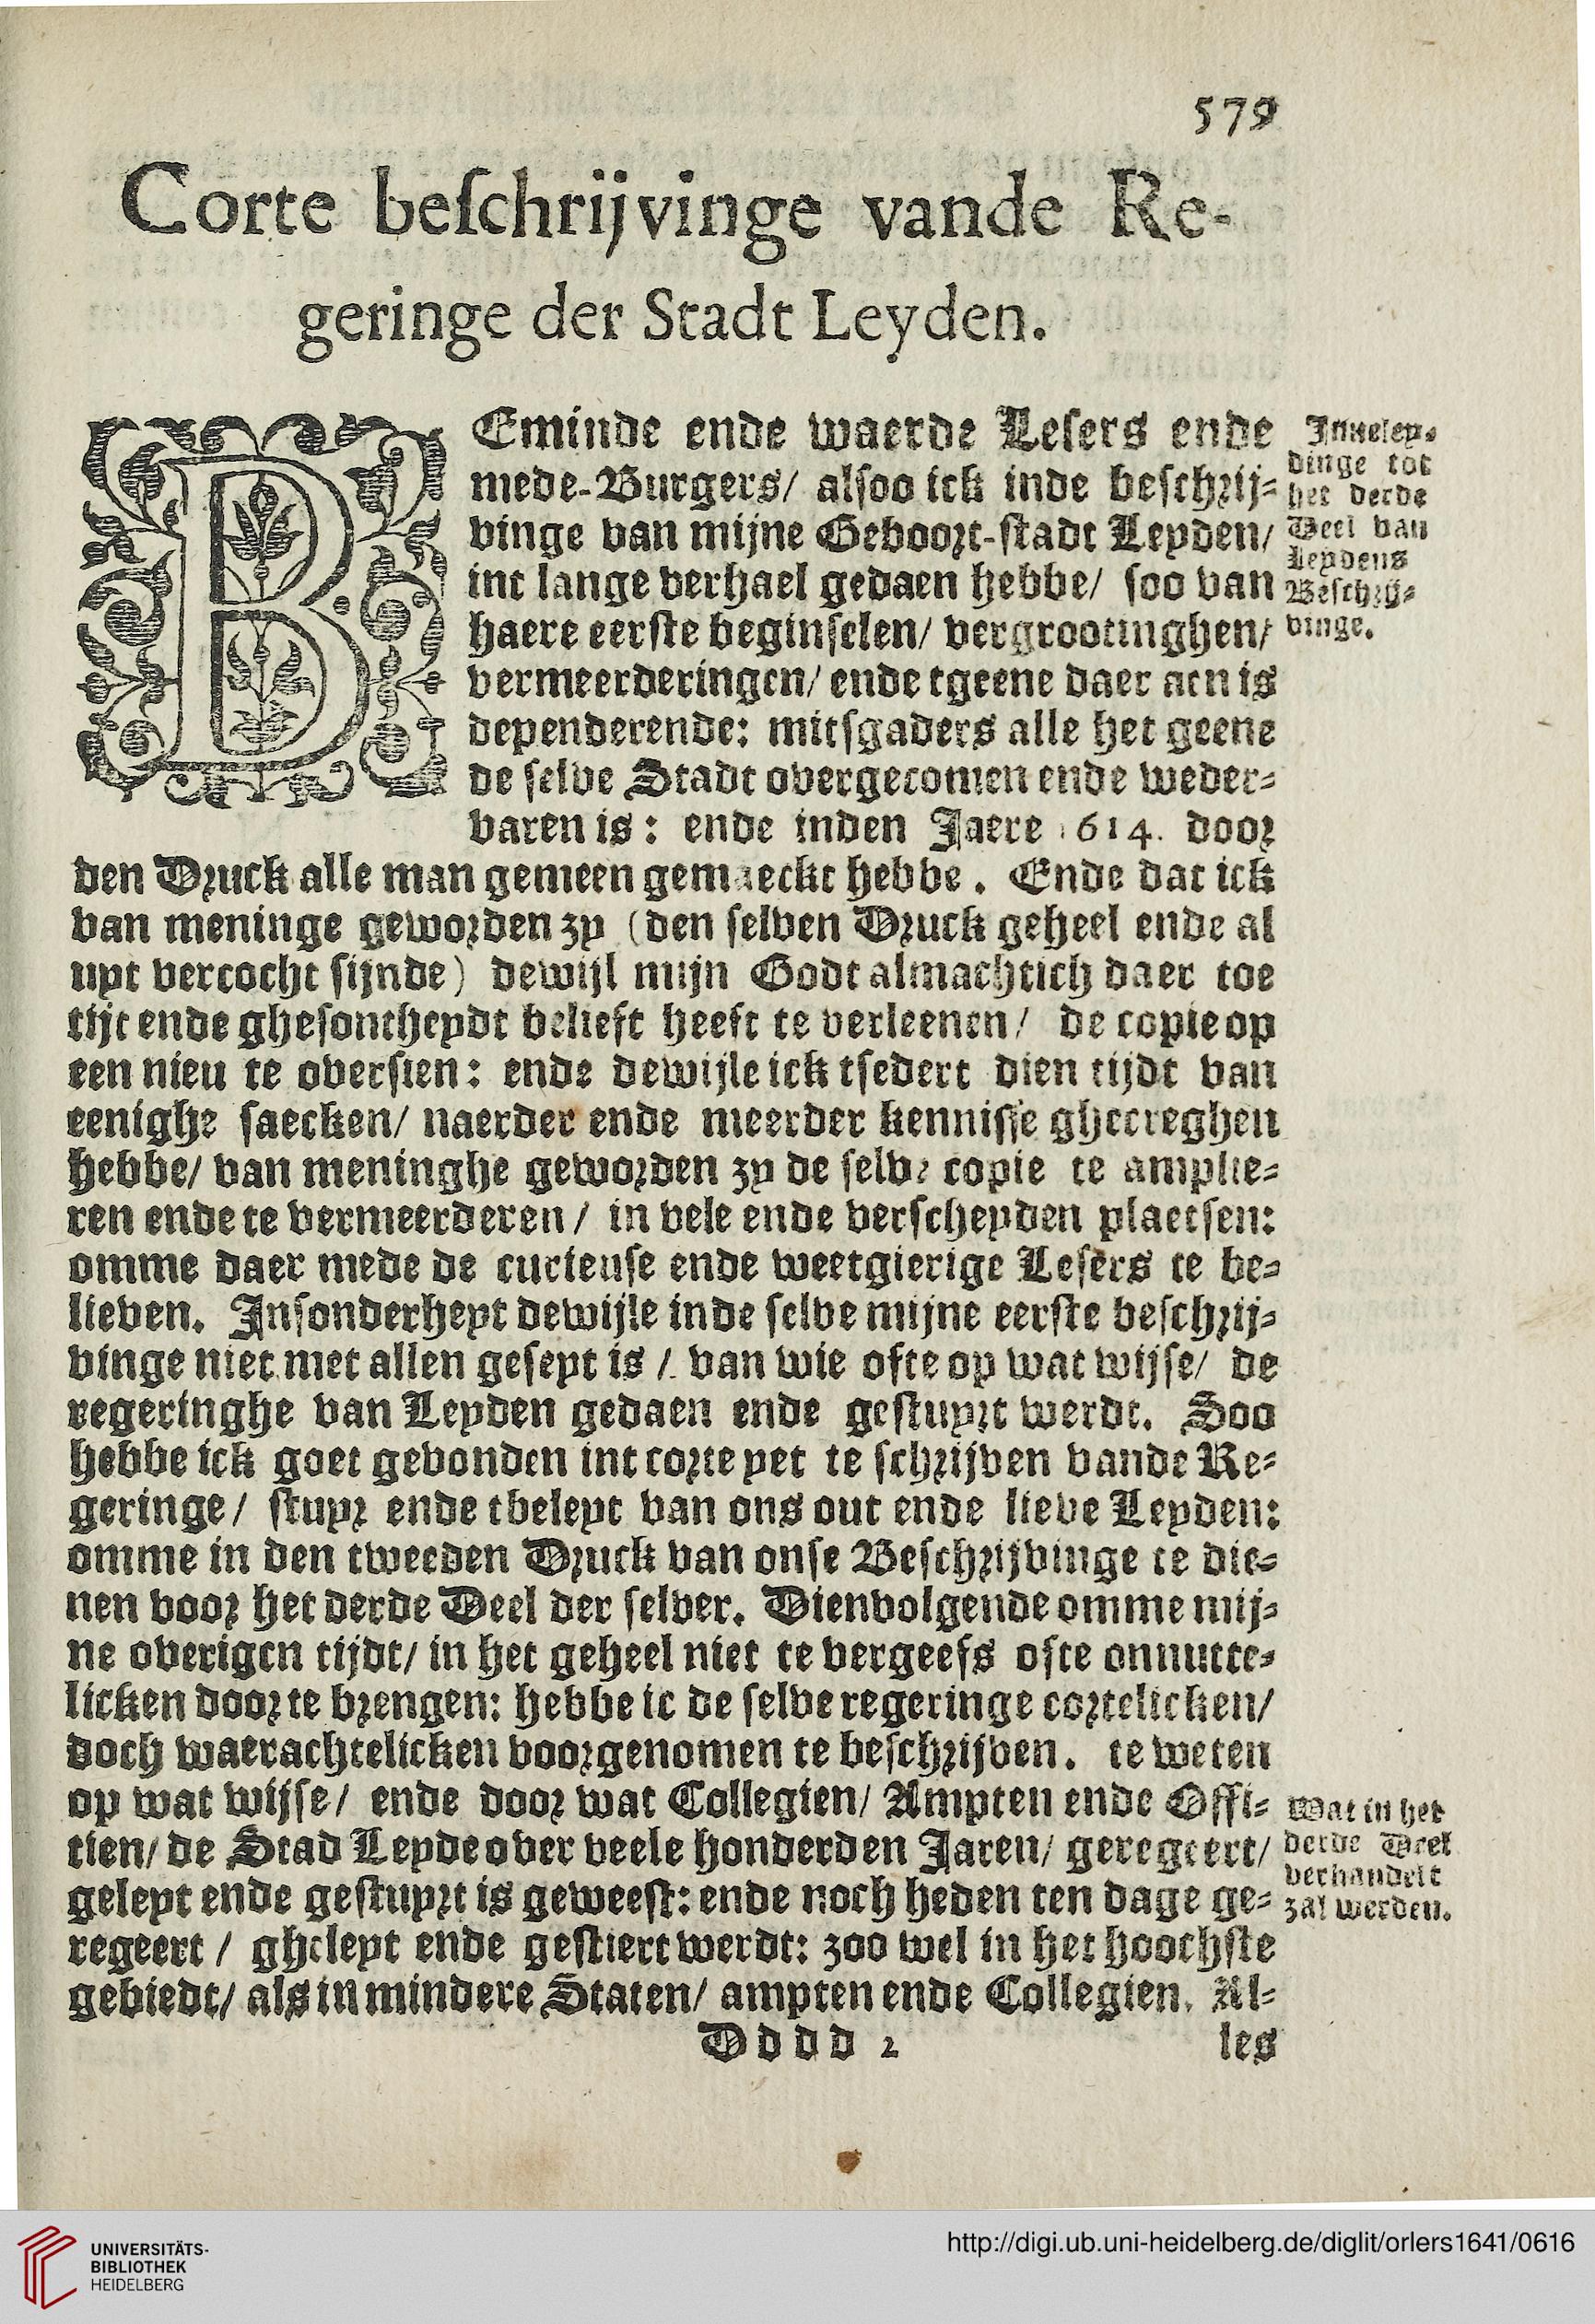 579
Corte beſchrijvinge vande Re-
geringe der Stadt Leyden.
BEminde ende waerde Lesers ende
mede-Burgers/ alsoo ick inde beschrij-
vinge van mijne Geboort-stadt Leyden/
int lange verhael gedaen hebbe/ soo van
haere eerste beginselen/ vergrootinghen/
vermeerderingen/ ende tgeene daer aen is
dependerende: mitsgaders alle het geene
de selve Stadt overgecomen ende weder-
varen is: ende inden Jaere 1614. door
den Druck alle man gemeen gemaeckt hebbe. Ende dat ick
van meninge geworden zy (den selven Druck geheel ende al
uyt vercocht sijnde) dewijl mijn Godt almachtich daer toe
tijt ende ghesontheydt belieft heeft te verleenen/ de copie op
een nieu te oversien: ende dewijle ick tsedert dien tijdt van
eenighe saecken/ naerder ende meerder kennisse ghecreghen
hebbe/ van meninghe geworden zy de selve copie te amplie-
ren ende te vermeerderen/ in vele ende verscheyden plaetsen:
omme daer mede de curieuse ende weetgierige Lesers te be-
lieven. Insonderheyt dewijle inde selve mijne eerste beschrij-
vinge niet met allen geseyt is/ van wie ofte op wat wijse/ de
regeringhe van Leyden gedaen ende gestuyrt werdt. Soo
hebbe ick goet gevonden int corte yet te schrijven vande Re-
geringe/ stuyr ende tbeleyt van ons out ende lieve Leyden:
omme in den tweeden Druck van onse Beschrijvinge te die-
nen voor het derde Deel der selver. Dienvolgende omme mij-
ne overigen tijdt/ in het geheel niet te vergeefs ofte onnutte-
licken door te brengen: hebbe ic de selve regeringe cortelicken/
doch waerachtelicken voorgenomen te beschrijven. te weten
op wat wijse/ ende door wat Collegien/ Ampten ende Offi-
tien/ de Stad Leyde over veele honderden Jaren/ geregeert/
geleyt ende gestuyrt is geweest: ende noch heden ten dage ge-
regeert/ gheleyt ende gestiert werdt: zoo wel in het hoochste
gebiedt/ als in mindere Staten/ ampten ende Collegien. Al-
Dddd 2 les
Inneley-
dinge tot
het derde
Deel van
Leydens
Beschrij-
vinge.
Wat in het
derde Deel
verhandelt
zal werden.
UNIVERSITÄTS-
BIBLIOTHEK
HEIDELBERG
http://digi.ub.uni-heidelberg.de/diglit/orlers1641/0616